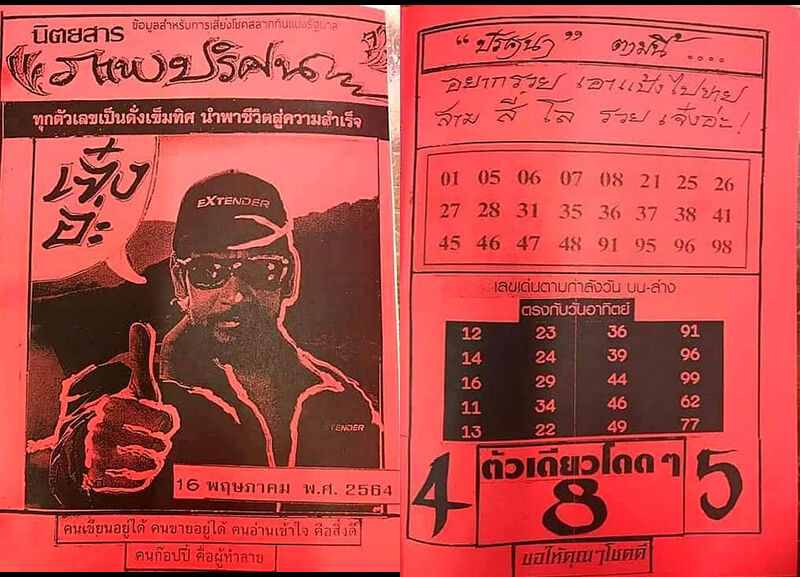 นิตยสาร
ข้อมูลสำหรับการเสี่ยงโชคสลากกินแบ่งรัฐบาล
ภาพปริศนา
ทุกตัวเลขเป็นดั่งเข็มทิศ นำพาชีวิตสู่ความสำเร็จ
เจ๋ง
อ่ะ
EXTENDER
TENDER
16 พฤษภาคม พ.ศ. 2564
คนเขียนอยู่ได้ คนขายอยู่ได้ คนอ่านเข้าใจ คือสิ่งดี
คนก๊อปปี้ คือผู้ทำลาย
“ปริศนา” ตามนี้ ....
อยากรวย เอาแป้งไปขาย
สาม สี่ โล รวย เจ๋งอ่ะ!
01 05 06 07 08 21 25 26
27 28 31 35 36 37 38 41
45 46 47 48 91 95 96 98
เลขเด่นตามกำลังวัน บน-ล่าง
ตรงกับวันอาทิตย์
12 23 36 91
14 24 39 96
16 29 44 99
11 34 46 62
13 22 49 77
ตัวเดียวโดด ๆ
4 8 5
ขอให้คุณๆโชคดี